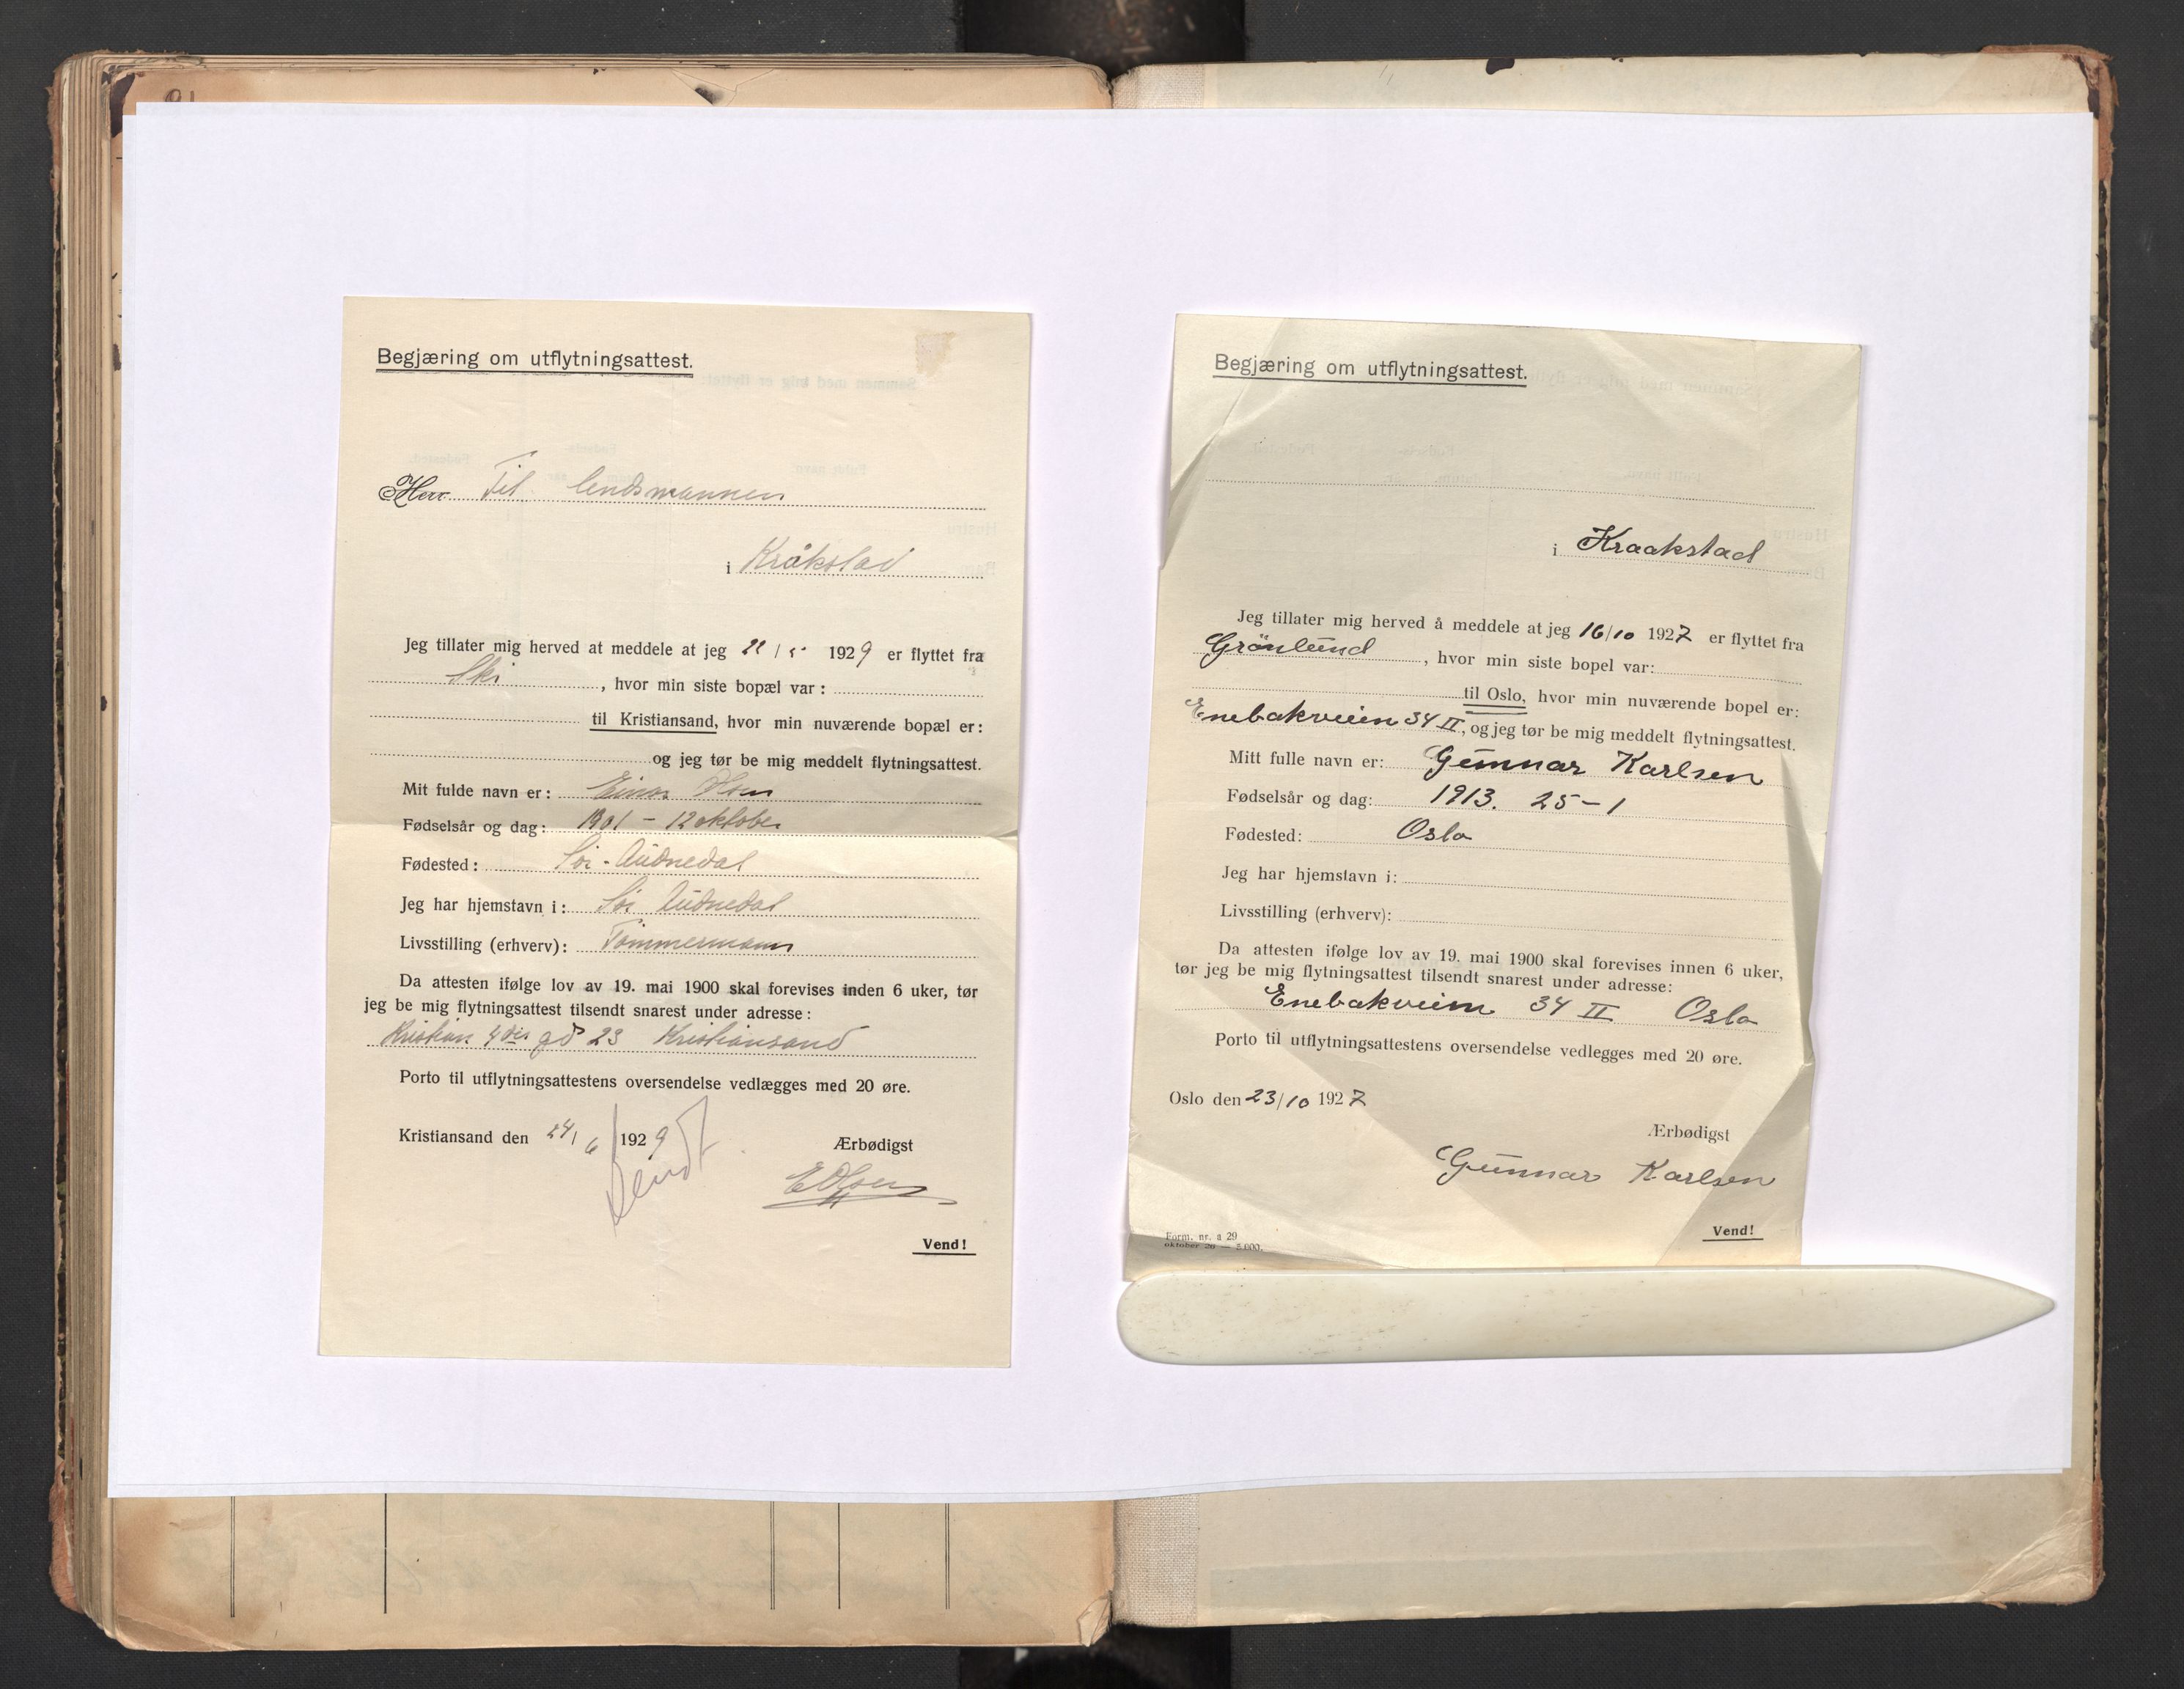 Begjæring om utflytningsattest.
Herr Til lendsmannen
i Kråkstad
Jeg tillater mig herved at meddele at jeg 22/5 1929 er flyttet fra
Ski, hvor min siste bopæl var:
til Kristiansand, hvor min nuværende bopæl er:
og jeg tør be mig meddelt flytningsattest.
Mit fulde navn er: Einar Olsen
Fødselsår og dag: 1901 - 12 oktober
Fødested: Sör-Audnedal
Jeg har hjemstavn i: Sör Audnedal
Livsstilling (erhverv): Tömmermann
Da attesten ifølge lov av 19. mai 1900 skal forevises inden 6 uker, tør
jeg be mig flytningsattest tilsendt snarest under adresse:
Kristian 4des gd 23 Kristiansand
Porto til utflytningsattestens oversendelse vedlægges med 20 øre.
Kristiansand den 24/6 1929
Sendt
Ærbødigst
E Olsen
Vend!
Begjæring om utflytningsattest.
i Kraakstad
Jeg tillater mig herved å meddele at jeg 16/10 1927 er flyttet fra
Grönlund, hvor min siste bopel var:
til Oslo, hvor min nuværende bopel er:
Enebakveien 34 II, og jeg tør be mig meddelt flytningsattest.
Mitt fulle navn er: Gunnar Karlsen
Fødselsår og dag: 1913. 25-1
Fødested: Oslo
Jeg har hjemstavn i:
Livsstilling (erhverv):
Da attesten ifølge lov av 19. mai 1900 skal forevises innen 6 uker,
tør jeg be mig flytningsattest tilsendt snarest under adresse:
Enebakveien 34 II Oslo
Porto til utflytningsattestens oversendelse vedlegges med 20 øre.
Oslo den 23/10 1927
Ærbødigst
Gunnar Karlsen
Form. nr. a 29
oktober 26 — 5.000.
Vend!